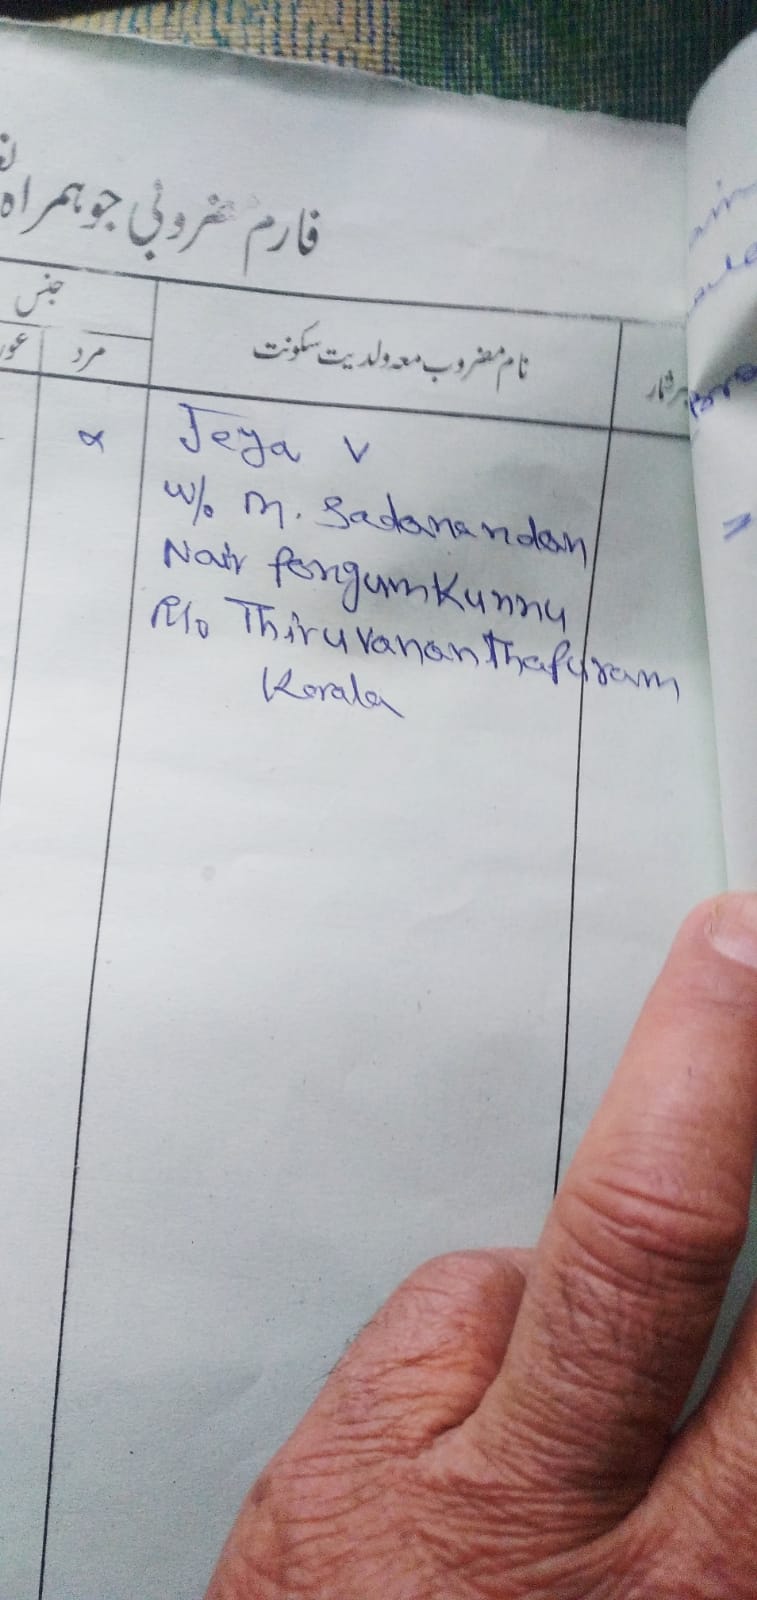 فارم مضروبی جو ہمراہ
جنس
مرد
نام مضروب معہ ولدیت سکونت
Jeya V
W/o M. Sadanandan
Nair PongumKunnu
R/o Thiruvananthapuram
Kerala